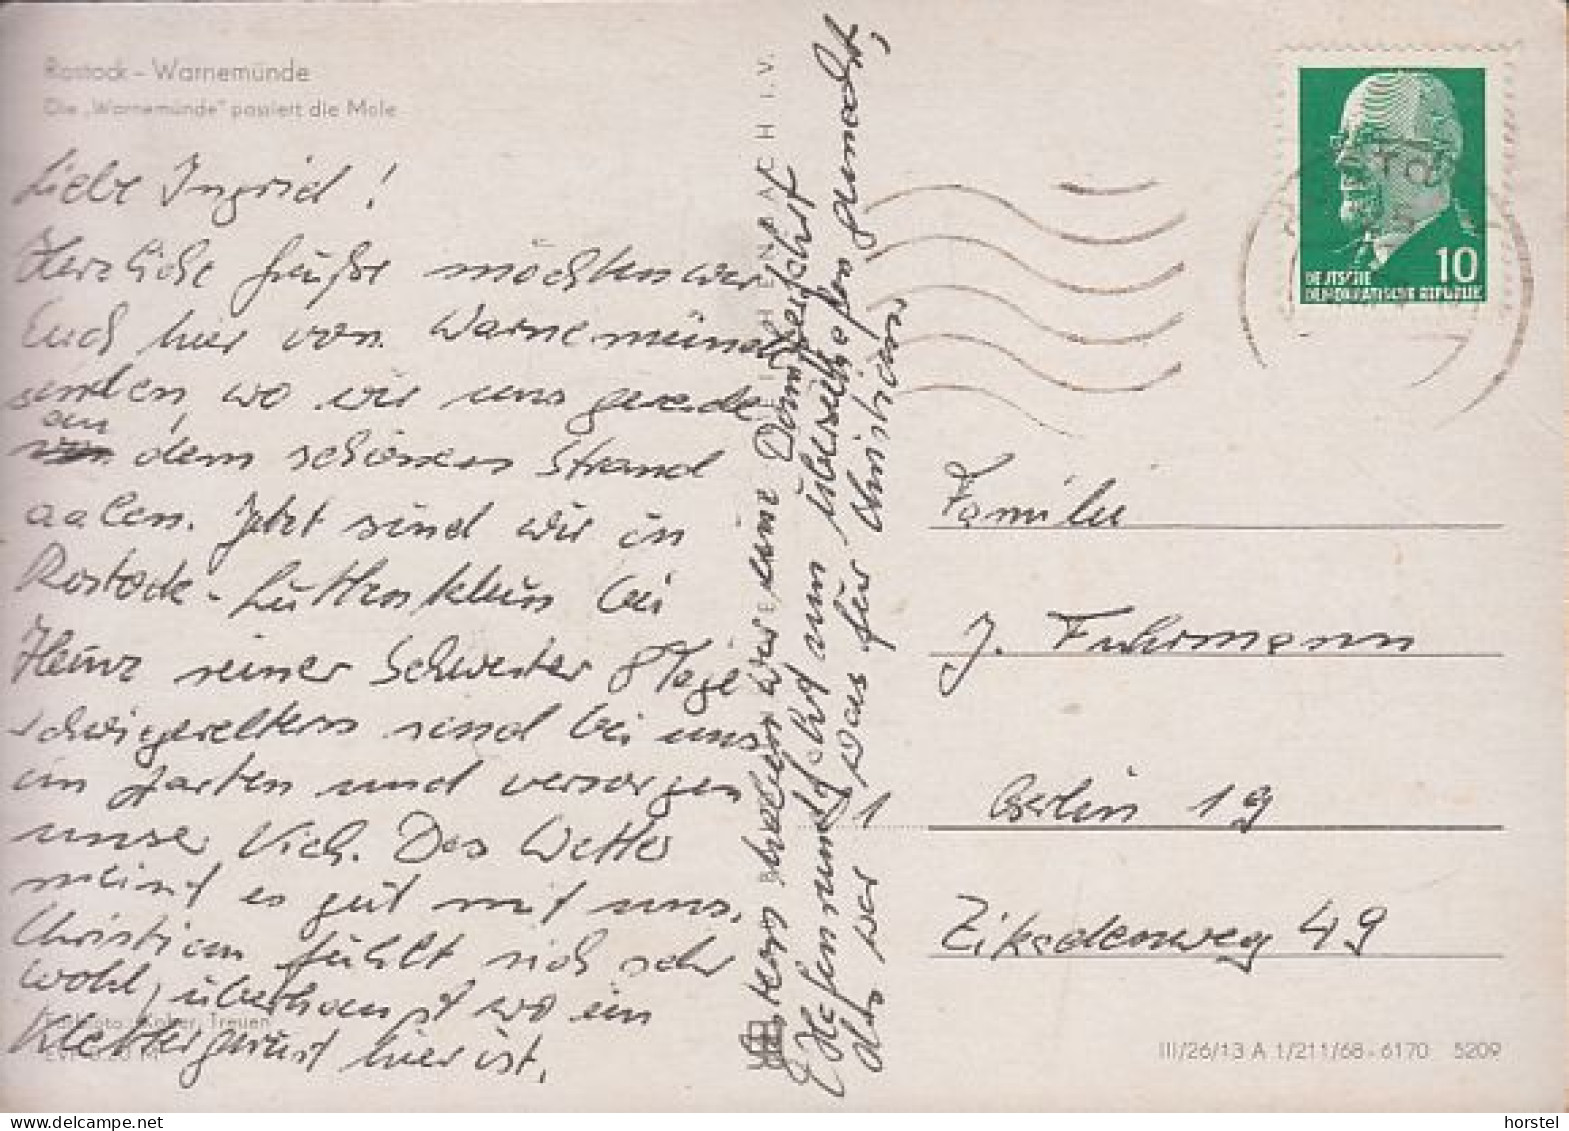 Rostock - Warnemünde
Die „Warnemünde" passiert die Mole
Liebe Ingrid!
Herzliche Grüße möchten wir
Euch hier von Warnemünde
senden, wo wir uns gerade
an
dem schönen Strand
aalen. Jetzt sind wir in
Rostock-Lüttenklein bei
Heinz seiner Schwester 8 Tage
schwiegereltern sind bei uns
im Garten und versorgen
unser Vieh. Das Wetter
meint es gut mit uns.
Christian fühlt sich sehr
wohl, überhaupt wo ein
Klettergerüst hier ist.
Gestern haben wir eine Dampferfahrt
Hafenrundfahrt zum Überseehafen gemacht,
das war was für Christian
BILD UND HEIMAT REICHENBACH I.V.
DEUTSCHE
DEMOKRATISCHE REPUBLIK
10
Familie
J. Fuhrmann
Berlin 19
Zikadenweg 49
1
Treuen
III/26/13 A 1/211/68-6170 5209
horstel